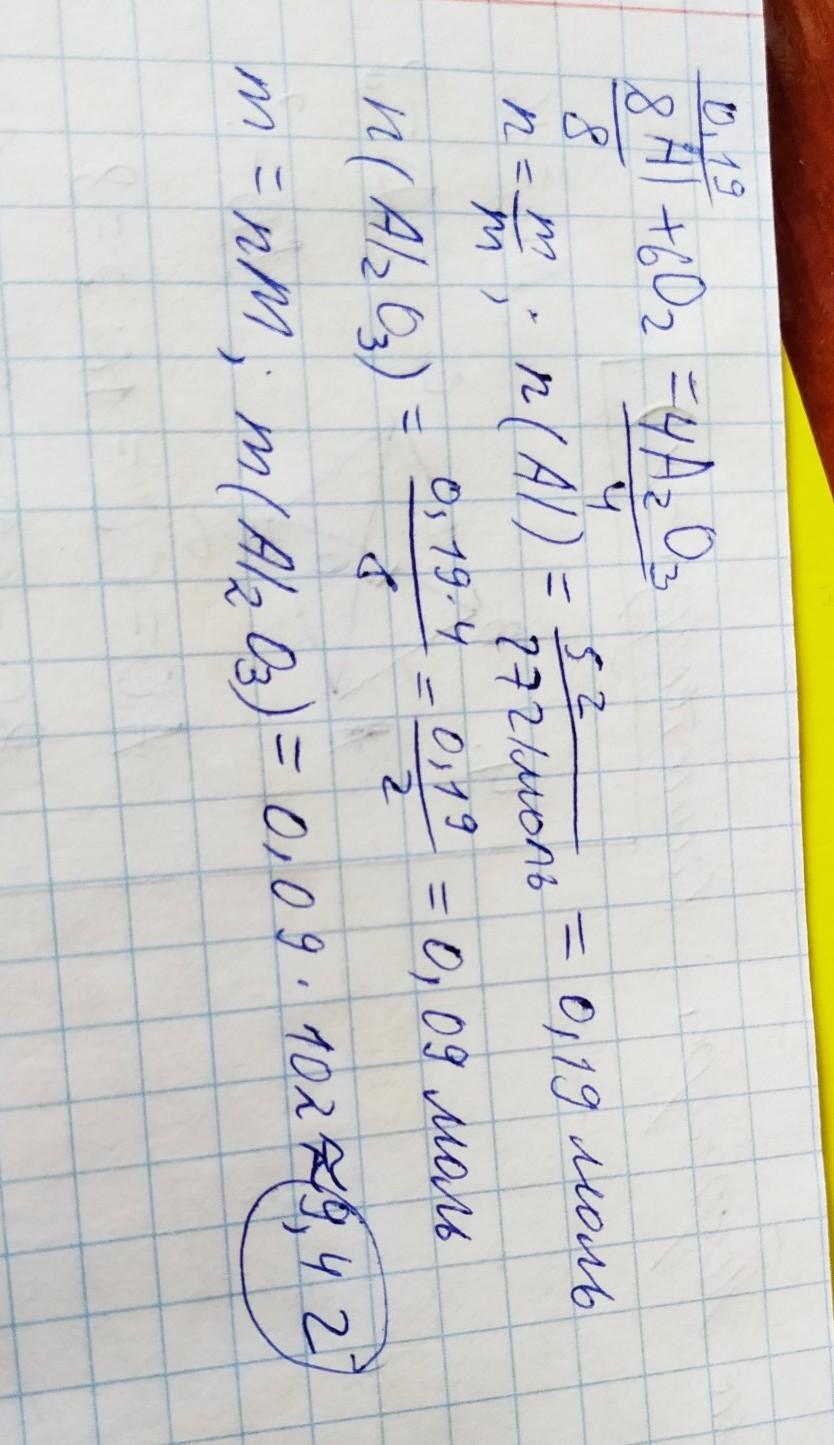 0,19
8Al + 6O₂ = 4A₂O₃
8 4
n = m/m, · n(Al) = 5г/27г/моль = 0,19 моль
n(Al₂O₃) = 0,19·4/8 = 0,19/2 = 0,09 моль
m = nM; m(Al₂O₃) = 0,09 · 102 ≈ 9,4 г